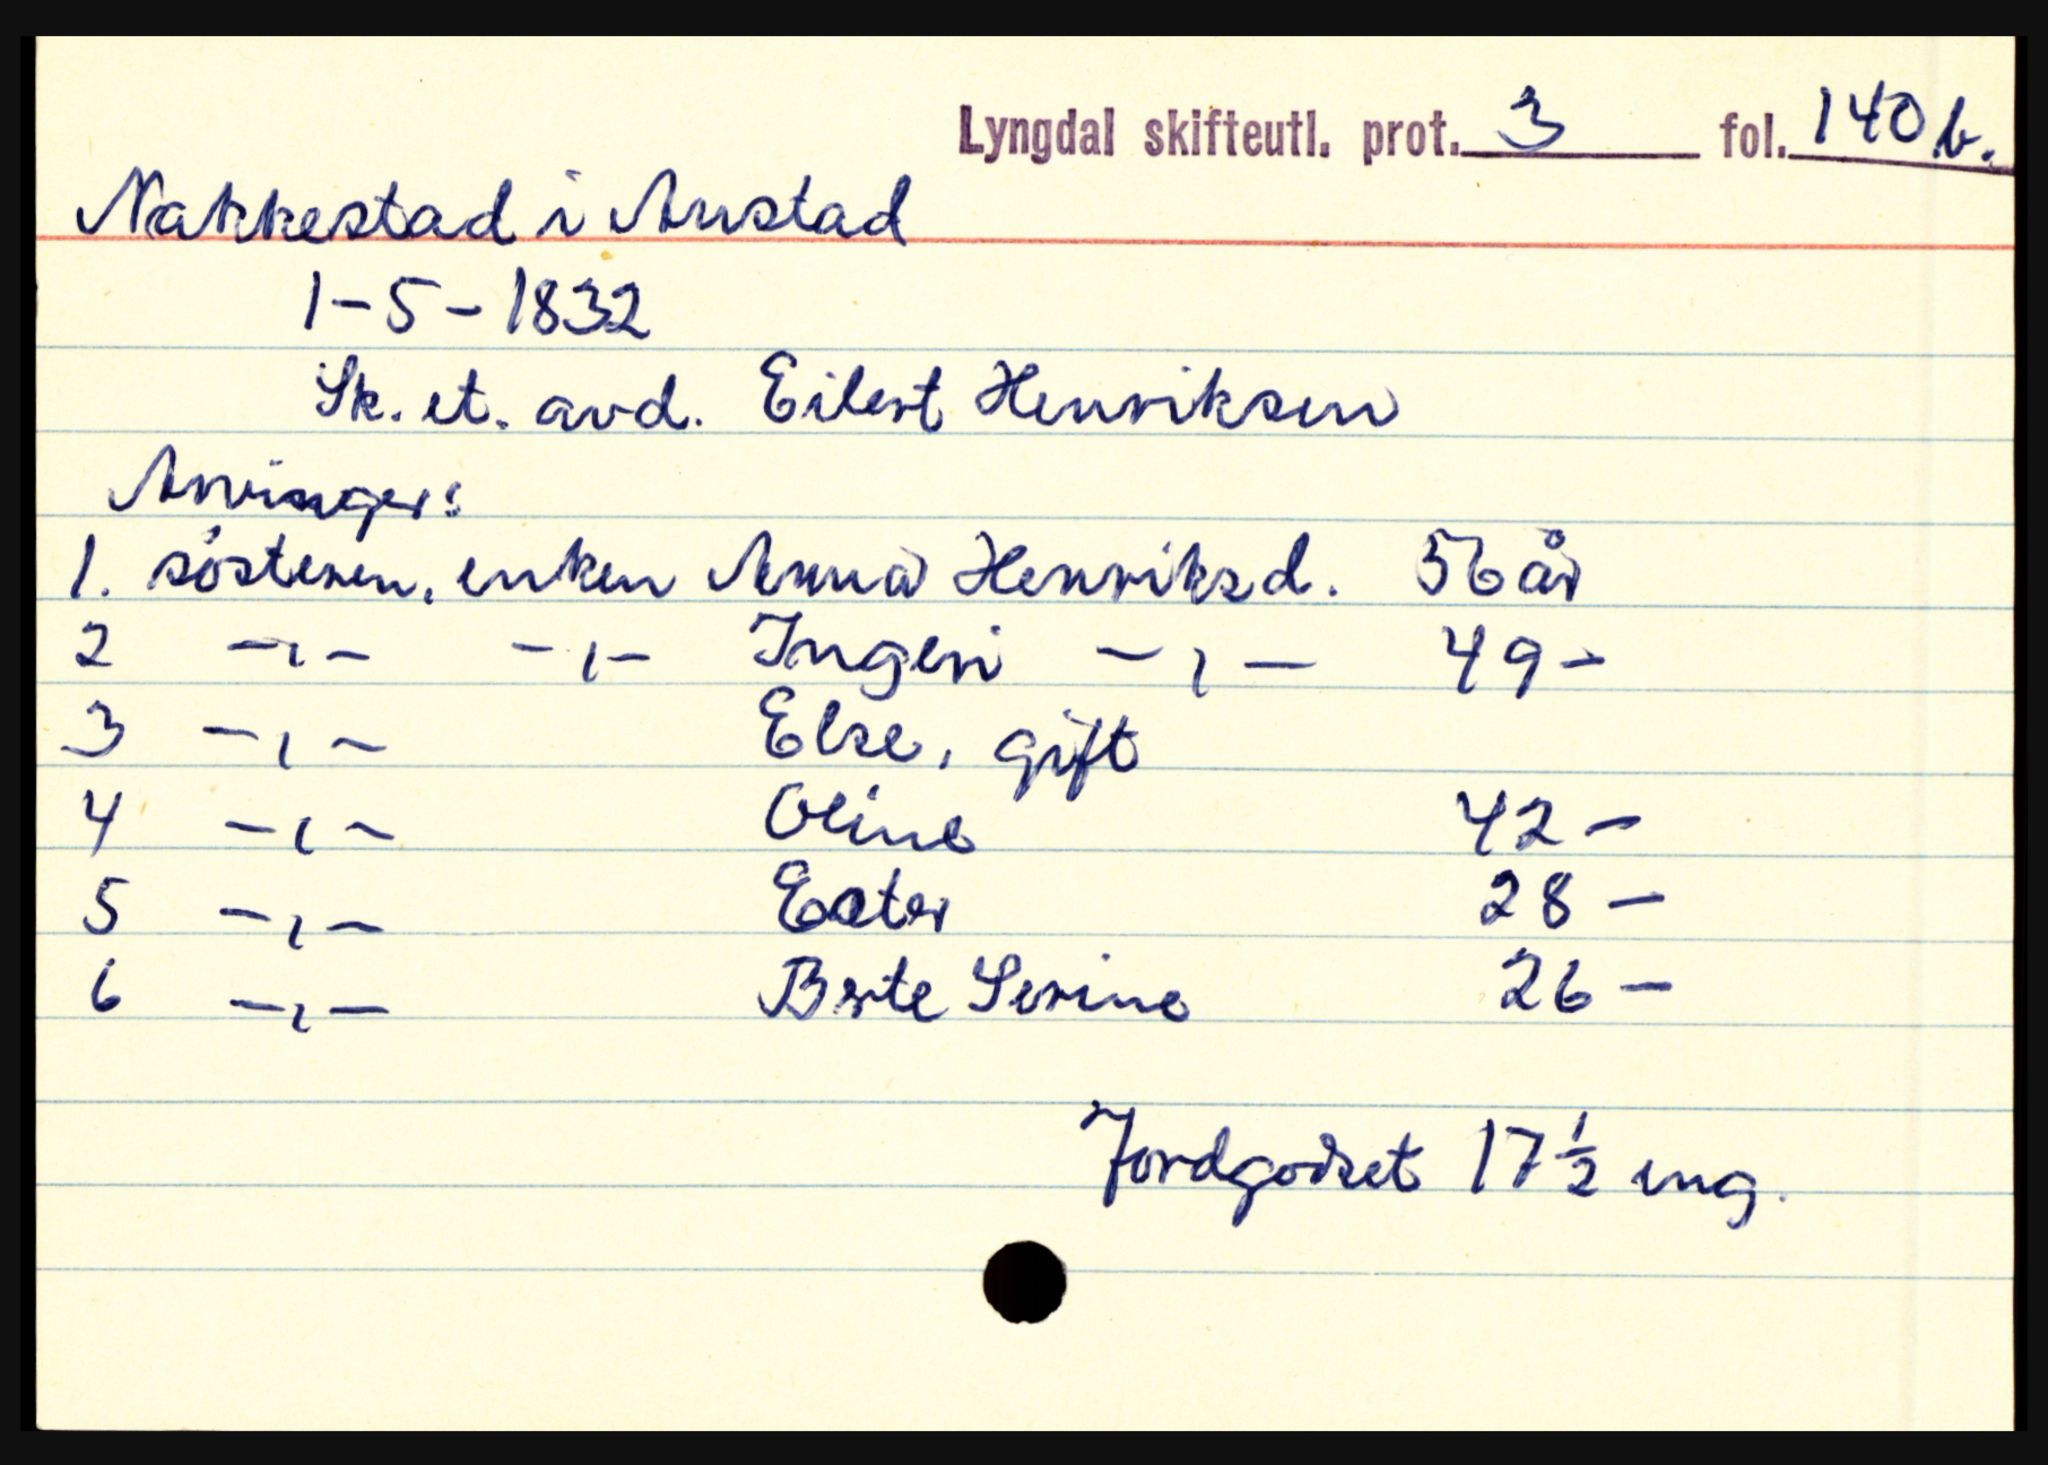 Lyngdal skifteutl. prot. 3 fol. 140 b.
Nakkestad i Austad
1-5-1832
Sk. et. avd. Eilert Henriksen
Arvinger:
1. søsteren, enken Anna Henriksd. 56 år
2 -,- -,- Ingeri -,- 49 -
3 -,- Else, gift
4 -,- Oline 42 -
5 -,- Ester 28 -
6 -,- Berte Serine 26 -
Jordgodset 17 1/2 eng.